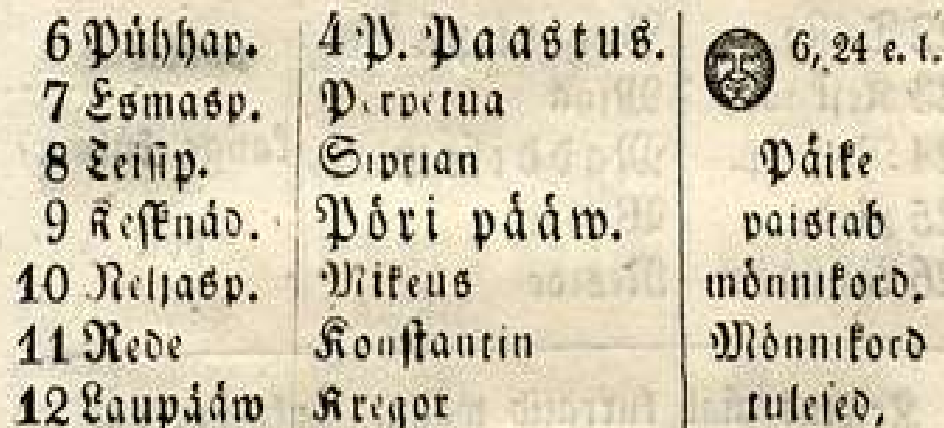 6 Pühhap. 4 P. Paastus. 6, 24 e. l.
7 Esmasp. Perpetua
8 Teisip. Siprian Päike
9 Kesknäd. Pöri pääw. paistab
10 Neljasp. Mikeus mönnikord.
11 Rede Konstantin Mönnikord
12 Laupääw Kregor tulesed,